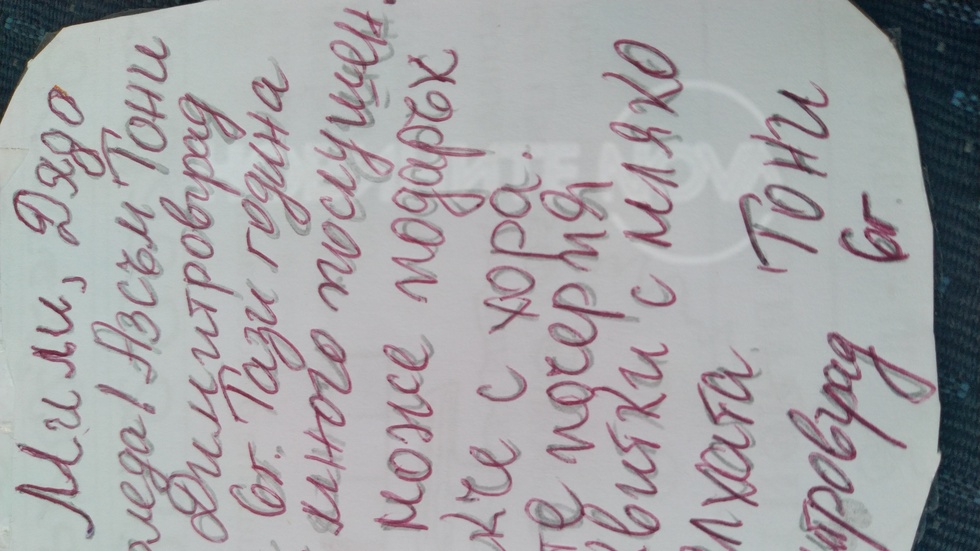 Мили, Дядо
оледа! Азсъм Тони
Димитровград
6г. Тази година
много послушен.
може подарък
кче с хора!
те почерпя
квитки с мляко
лхата
Тони
тровград 6г